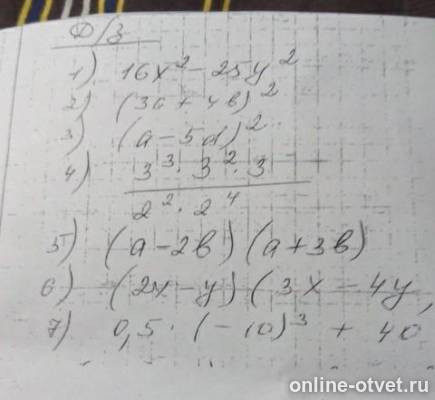 Д/з
1) 16x² - 25y²
2) (3a + 4b)²
3) (a - 5d)²
4) 3³ · 3² · 3
2² · 2⁴
5) (a - 2b) (a + 3b)
6) (2x - y) (3x - 4y
7) 0,5 · (-10)³ + 40
online-otvet.ru